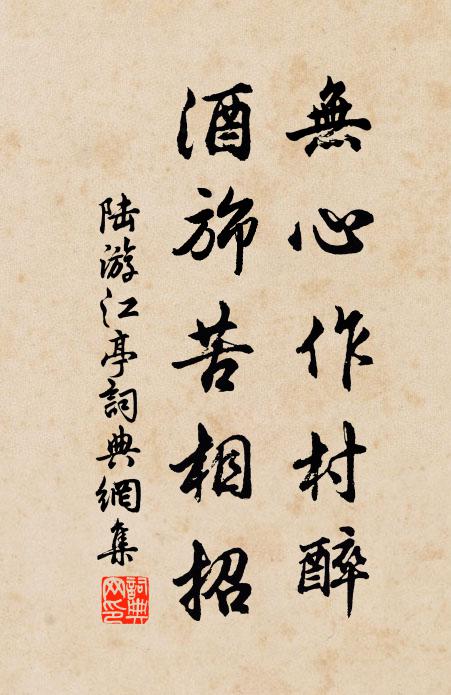 無心作村醉
酒旆苦相招
陆游江亭詞典網集
詞典
网印